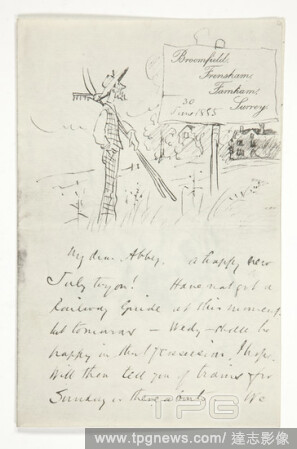 Broomfield,
Frensham,
Farnham,
Surrey.
30
June 1885
My dear Abbey. A happy new
July to you! Have not got a
Railway Guide at this moment
but tomorrow — Wedy — shall be
happy in the possession, I hope.
Will then tell you of trains &c for
Sunday
We
TPG
www.tpgnews.com / 達志影像